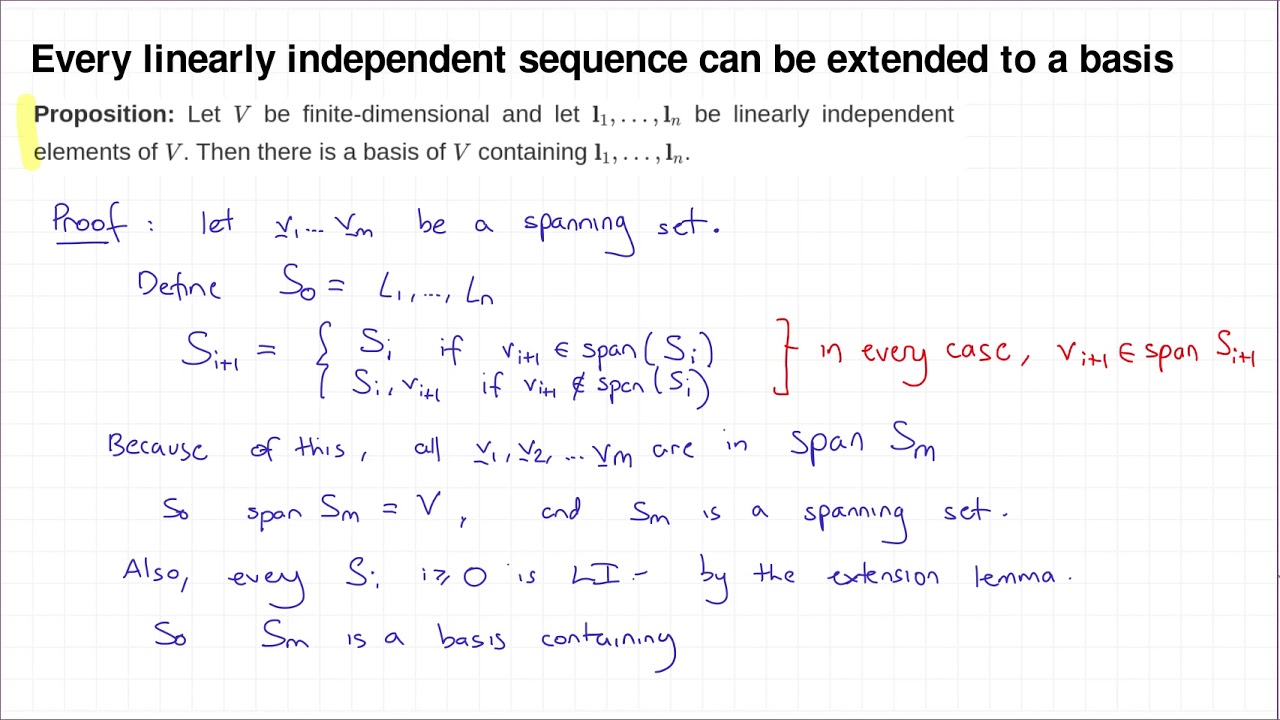 Every linearly independent sequence can be extended to a basis
Proposition: Let V be finite-dimensional and let l₁, . . . , lₙ be linearly independent
elements of V. Then there is a basis of V containing l₁, . . . , lₙ.
Proof : let v₁ ... vₘ be a spanning set.
Define S₀ = L₁, ..., Lₙ
Sᵢ₊₁ = { Sᵢ if vᵢ₊₁ ∈ span(Sᵢ) } in every case, vᵢ₊₁ ∈ span Sᵢ₊₁
{ Sᵢ, vᵢ₊₁ if vᵢ₊₁ ∉ span(Sᵢ)
Because of this, all v₁, v₂, ... vₘ are in span Sₘ
So span Sₘ = V, and Sₘ is a spanning set.
Also, every Sᵢ i ≥ 0 is LI - by the extension lemma.
So Sₘ is a basis containing